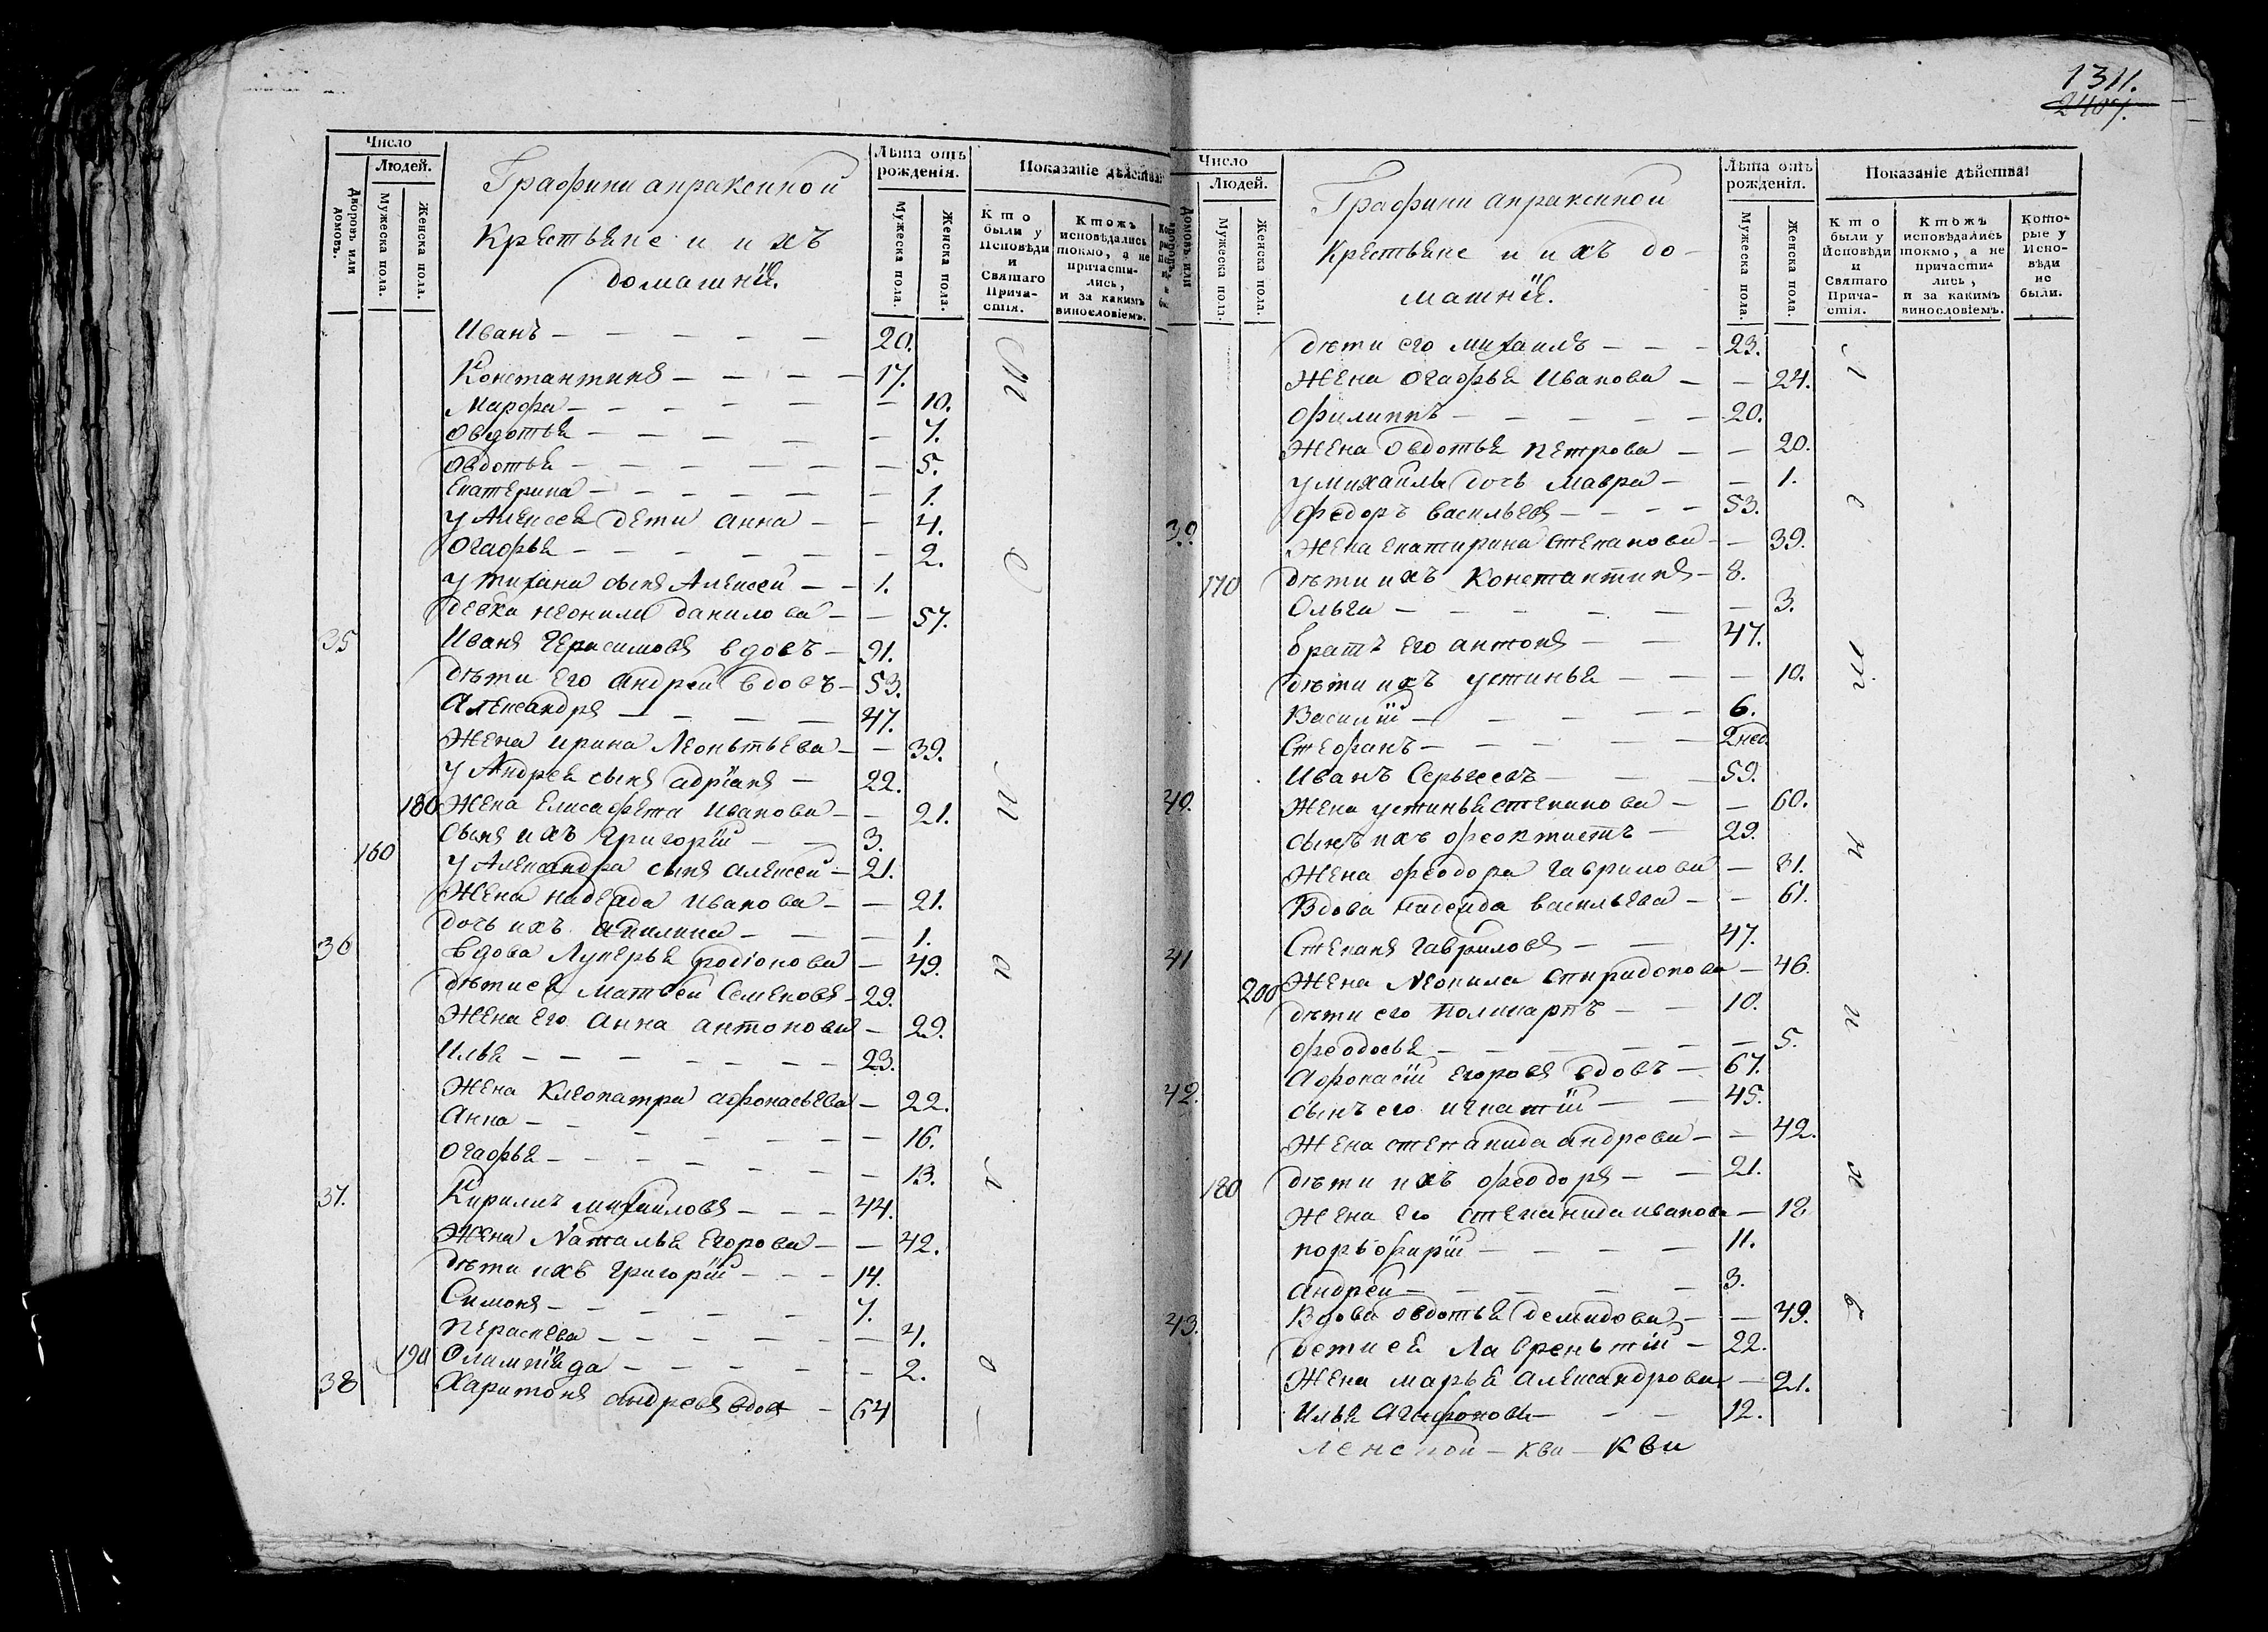 1311.
2407.
Число
Людей.
Дворовъ или домовъ.
Мужеска пола.
Женска пола.
Графини апраксиной
Крестьяне и ихъ
домашнїе.
Лѣта отъ рожденія.
Мужеска пола.
Женска пола.
Показаніе дѣйства:
Кто были у Исповѣди и Святаго Причастія.
Ктожъ исповѣдались токмо, а не причастились, и за какимъ винословіемъ.
Иванъ — 20.
Константинъ — 17.
Марфа — 10.
Овдотья — 7.
Овдотья — 5.
Екатерина — 1.
у Алексея дети анна — 4.
Огафья — 2.
у тихана сынъ Алексей — 1.
девка неонила данилова — 57.
35 Иванъ Герасимовъ вдовъ — 91.
дѣти его андрей вдовъ — 53.
Александръ — 47.
Жена ирина Леонтьева — 39.
у Андрея сынъ адрїанъ — 22.
180 Жена Елисафета Иванова — 21.
сынъ ихъ Григорїй — 3.
160 у Александра сынъ алексей — 21.
Жена надежда иванова — 21.
дочь ихъ акилина — 1.
36 вдова Лукерья родїонова — 49.
дѣти ея Матвей Семеновъ — 29.
Жена его анна антонова — 29.
Илья — 23.
Жена Клеопатра афонасьева — 22.
Анна — 16.
Огафья — 13.
37. Кирилъ михаиловъ — 44.
Жена Наталья Егорова — 42.
дѣти ихъ григорїй — 14.
Симонъ — 7.
Перасковья — 4.
190 Олимпїяда — 2.
38 Харитонъ андреевъ вдов — 64
Число
Людей.
Дворовъ или домовъ
Мужеска пола.
Женска пола.
Графини апраксиной
Крестьяне и ихъ до-
машнїе.
Лѣта отъ рожденія.
Мужеска пола.
Женска пола.
Показаніе дѣйства:
Кто были у Исповѣди и Святаго Причастія.
Ктожъ исповѣдались токмо, а не причастились, и за какимъ винословіемъ.
Которые у Исповѣди не были.
дѣти его михаилъ — 23.
Жена Огафья Иванова — 24.
филиппъ — 20.
Жена Овдотья петрова — 20.
у михайлы дочь мавра — 1.
39. федоръ васильевъ — 53.
Жена екатирина степанова — 39.
170 дѣти ихъ Константинъ — 8.
Ольга — 3.
братъ его антонъ — 47.
дѣти ихъ устинья — 10.
Василїй — 6.
Стефанъ — 2 нед.
Иванъ Сергеевъ — 59.
40. Жена устинья степанова — 60.
сынъ ихъ феоктистъ — 29.
Жена феодора гаврилова — 31.
Вдова надежда васильева — 61.
41 Степанъ гавриловъ — 47.
200 Жена Неонила спиридонова — 46.
дѣти его Поликарпъ — 10.
феодосья — 5.
Афонасїй егоровъ вдовъ — 67.
42. сынъ его игнатїй — 45.
Жена степанида андреева — 42.
180 дѣти ихъ феодоръ — 21.
Жена его степанида иванова — 18
порфирїй — 11.
андрей — 3.
43. Вдова овдотья демидова — 49.
дети ея Лавреньтїй — 22.
Жена марья александрова — 21.
Илья Агафонов — 12.